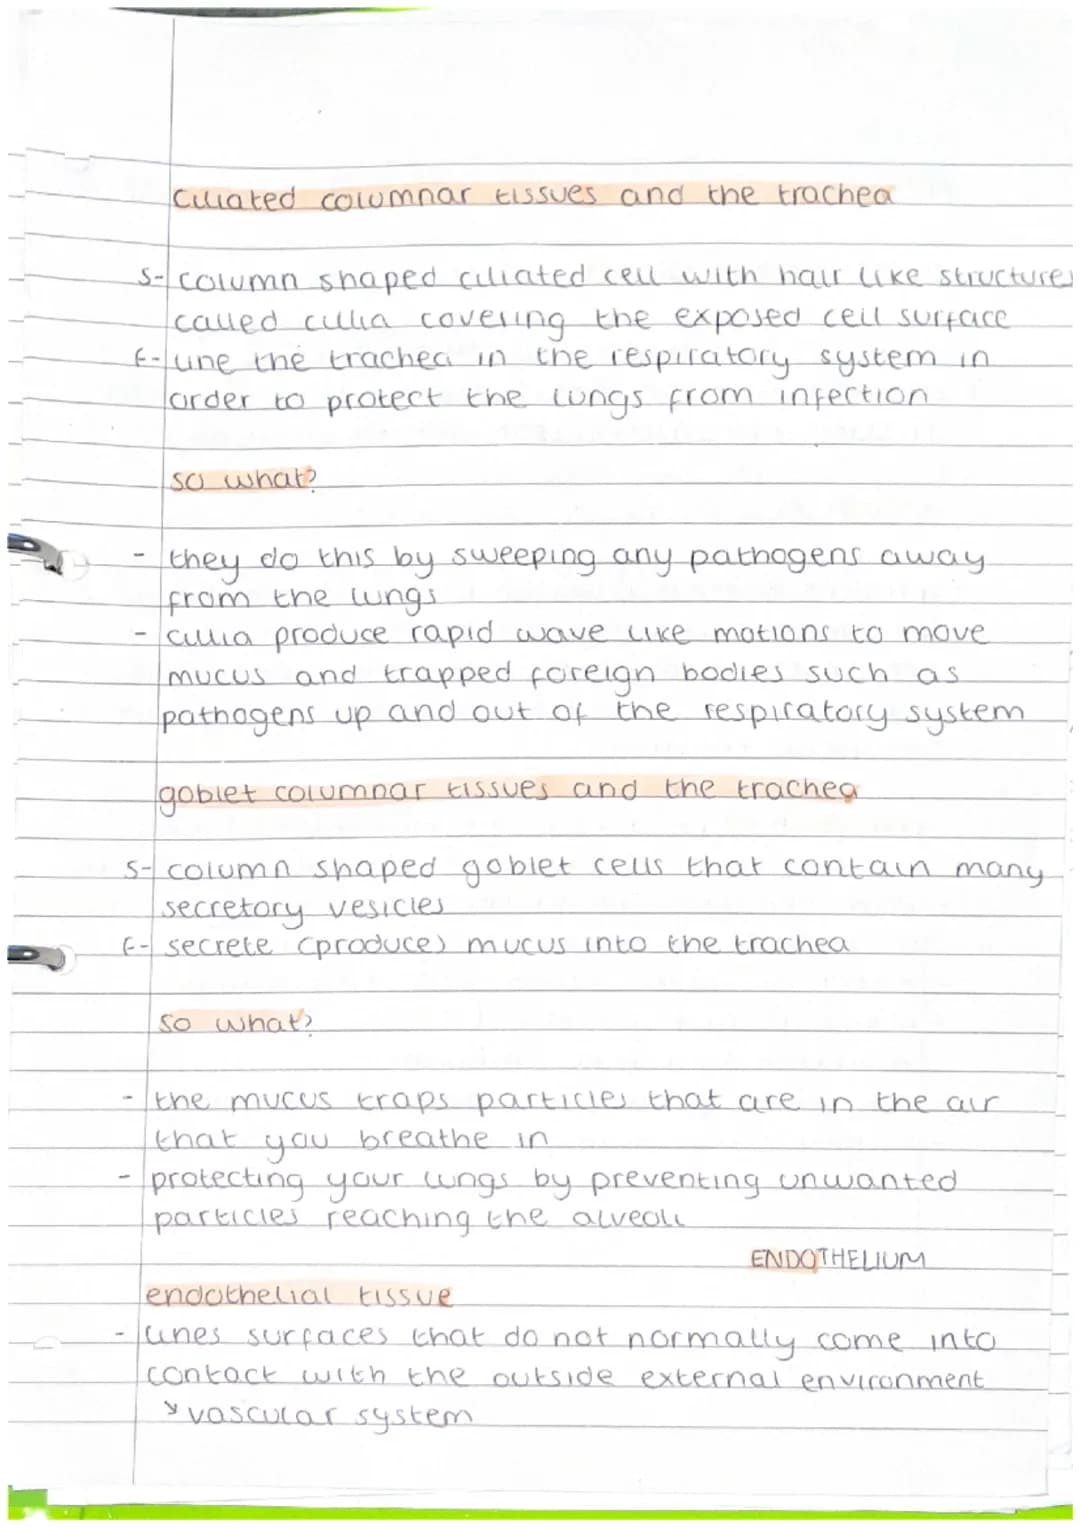 ciliated columnar tissues and the trachea
S- column shaped ciliated cell with hair like structures
called cillia covering the exposed cell surface
F- line the trachea in the respiratory system in
order to protect the lungs from infection
so what?
- they do this by sweeping any pathogens away
from the lungs
- cillia produce rapid wave like motions to move
mucus and trapped foreign bodies such as
pathogens up and out of the respiratory system
goblet columnar tissues and the trachea
S- column shaped goblet cells that contain many
secretory vesicles
F- secrete (produce) mucus into the trachea
so what?
- the mucus traps particles that are in the air
that you breathe in
- protecting your lungs by preventing unwanted
particles reaching the alveoli
ENDOTHELIUM
endothelial tissue
- lines surfaces that do not normally come into
contact with the outside external environment
↘ vascular system